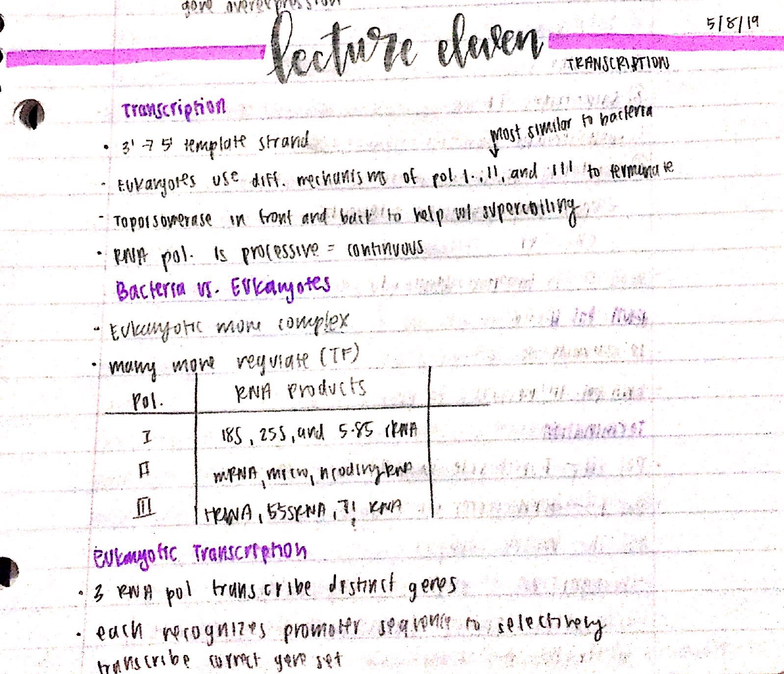 gene overexpression
5/8/19
lecture eleven
TRANSCRIPTION
Transcription
• 3' → 5' template strand
most similar to bacteria
- Eukaryotes use diff. mechanisms of pol I, II, and III to terminate
- Topoisomerase in front and back to help w/ supercoiling
• RNA pol. is processive = continuous
Bacteria vs. Eukaryotes
- Eukaryotic more complex
• many more regulate (TF)
Pol. RNA Products
I 18S, 25S, and 5.8S rRNA
II mRNA, micro, noncoding RNA
III tRNA, 5S rRNA, RNA
Eukaryotic Transcription
• 3 RNA pol transcribe distinct genes
• each recognizes promoter sequence to selectively
transcribe correct gene set